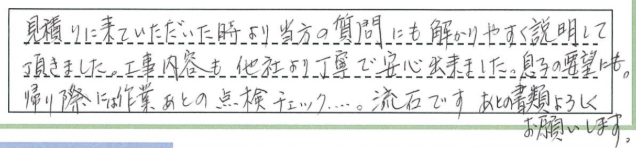 見積りに来ていただいた時より当方の質問にも解かりやすく説明して
頂きました。工事内容も他社より丁寧で安心出来ました。息子の要望にも。
帰り際には作業あとの点検チェック....。流石です あとの書類よろしく
お願いします。